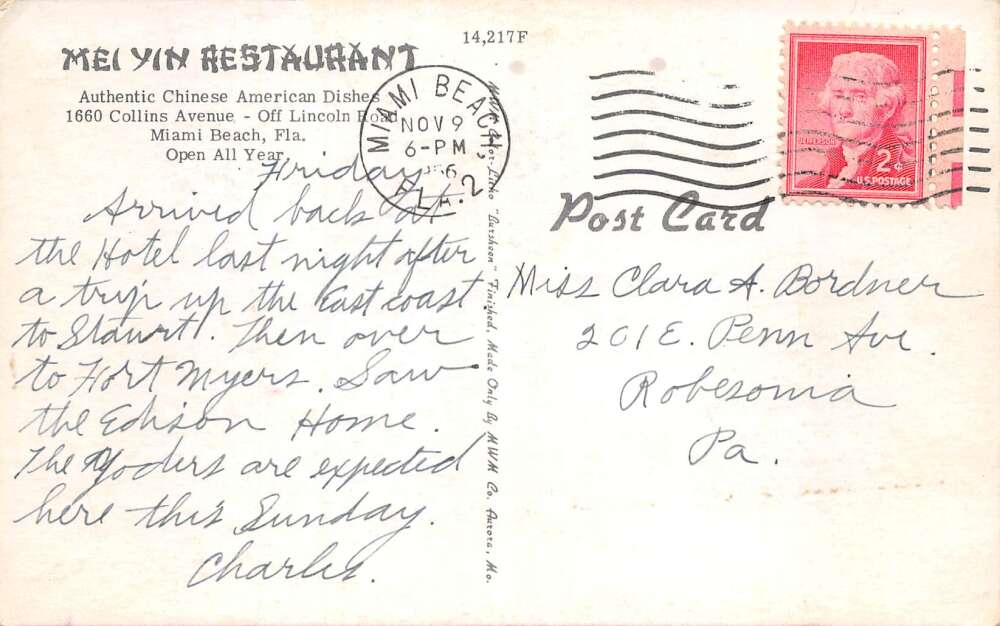 MEI YIN RESTAURANT
Authentic Chinese American Dishes
1660 Collins Avenue - Off Lincoln Road
Miami Beach, Fla.
Open All Year
14,217F
MIAMI BEACH, FLA. 2
NOV 9
6-PM
1956
JEFFERSON
2¢
U.S. POSTAGE
Post Card
Friday
Arrived back at
the Hotel last night after
a trip up the East coast
to Staurt. Then over
to Fort Myers. Saw
the Edison Home.
The Yoders are expected
here this Sunday.
Charles.
MWM Color-Litho "Dursheen" Finished, Made Only By MWM Co. Aurora, Mo.
Miss Clara A. Bordner
201 E. Penn Ave.
Robesonia
Pa.